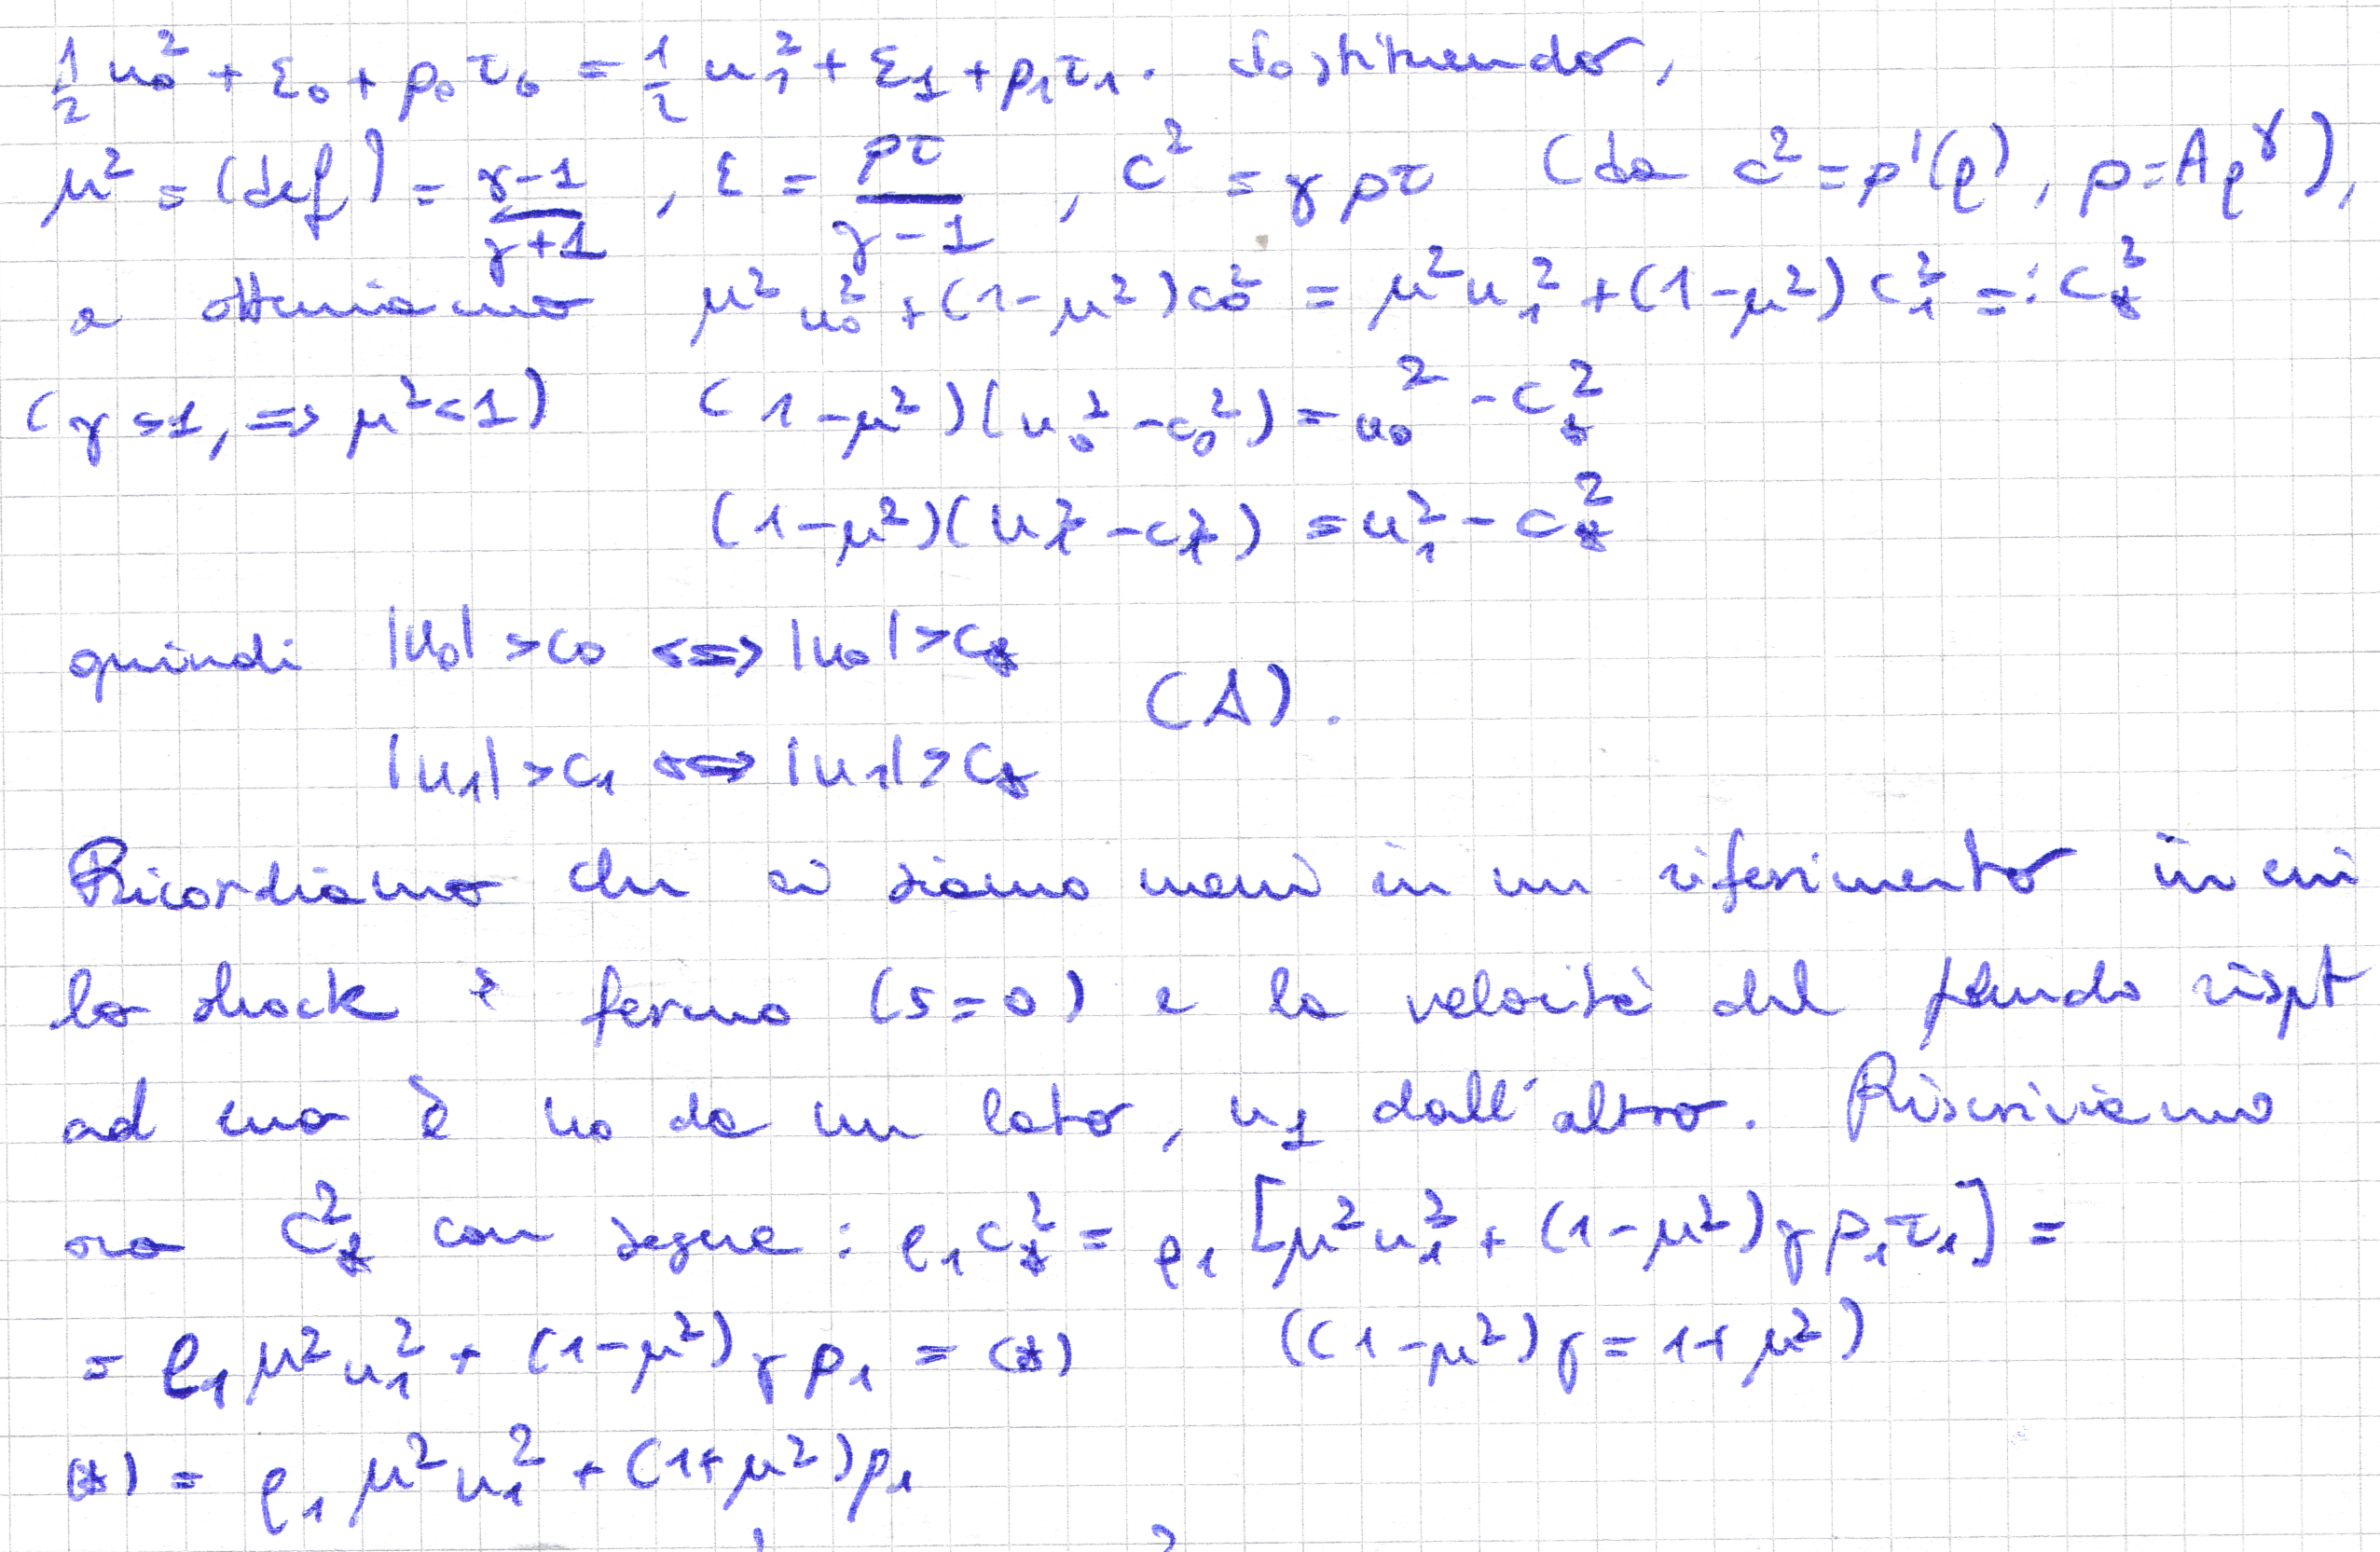 ½ u₀² + ε₀ + p₀τ₀ = ½ u₁² + ε₁ + p₁τ₁. Sostituendo,
μ² = (def) = (γ-1)/(γ+1), ε = pτ/(γ-1), c² = γpτ (da c² = p'(ρ), p = Aρ^γ),
e otteniamo μ²u₀² + (1-μ²)c₀² = μ²u₁² + (1-μ²)c₁² =: c⁎²
(γ>1, ⇒ μ²<1) (1-μ²)(u₀²-c₀²) = u₀² - c⁎²
(1-μ²)(u₁²-c₁²) = u₁² - c⁎²
quindi |u₀| > c₀ ⇔ |u₀| > c⁎
(A).
|u₁| > c₁ ⇔ |u₁| > c⁎
Ricordiamo che ci siamo messi in un riferimento in cui
lo shock è fermo (s=0) e la velocità del fluido rispt
ad esso è u₀ da un lato, u₁ dall'altro. Riscriviamo
ora c⁎² come segue: ρ₁c⁎² = ρ₁[μ²u₁² + (1-μ²)γp₁τ₁] =
= ρ₁μ²u₁² + (1-μ²)γp₁ = (*) ((1-μ²)γ = 1+μ²)
(*) = ρ₁μ²u₁² + (1+μ²)p₁